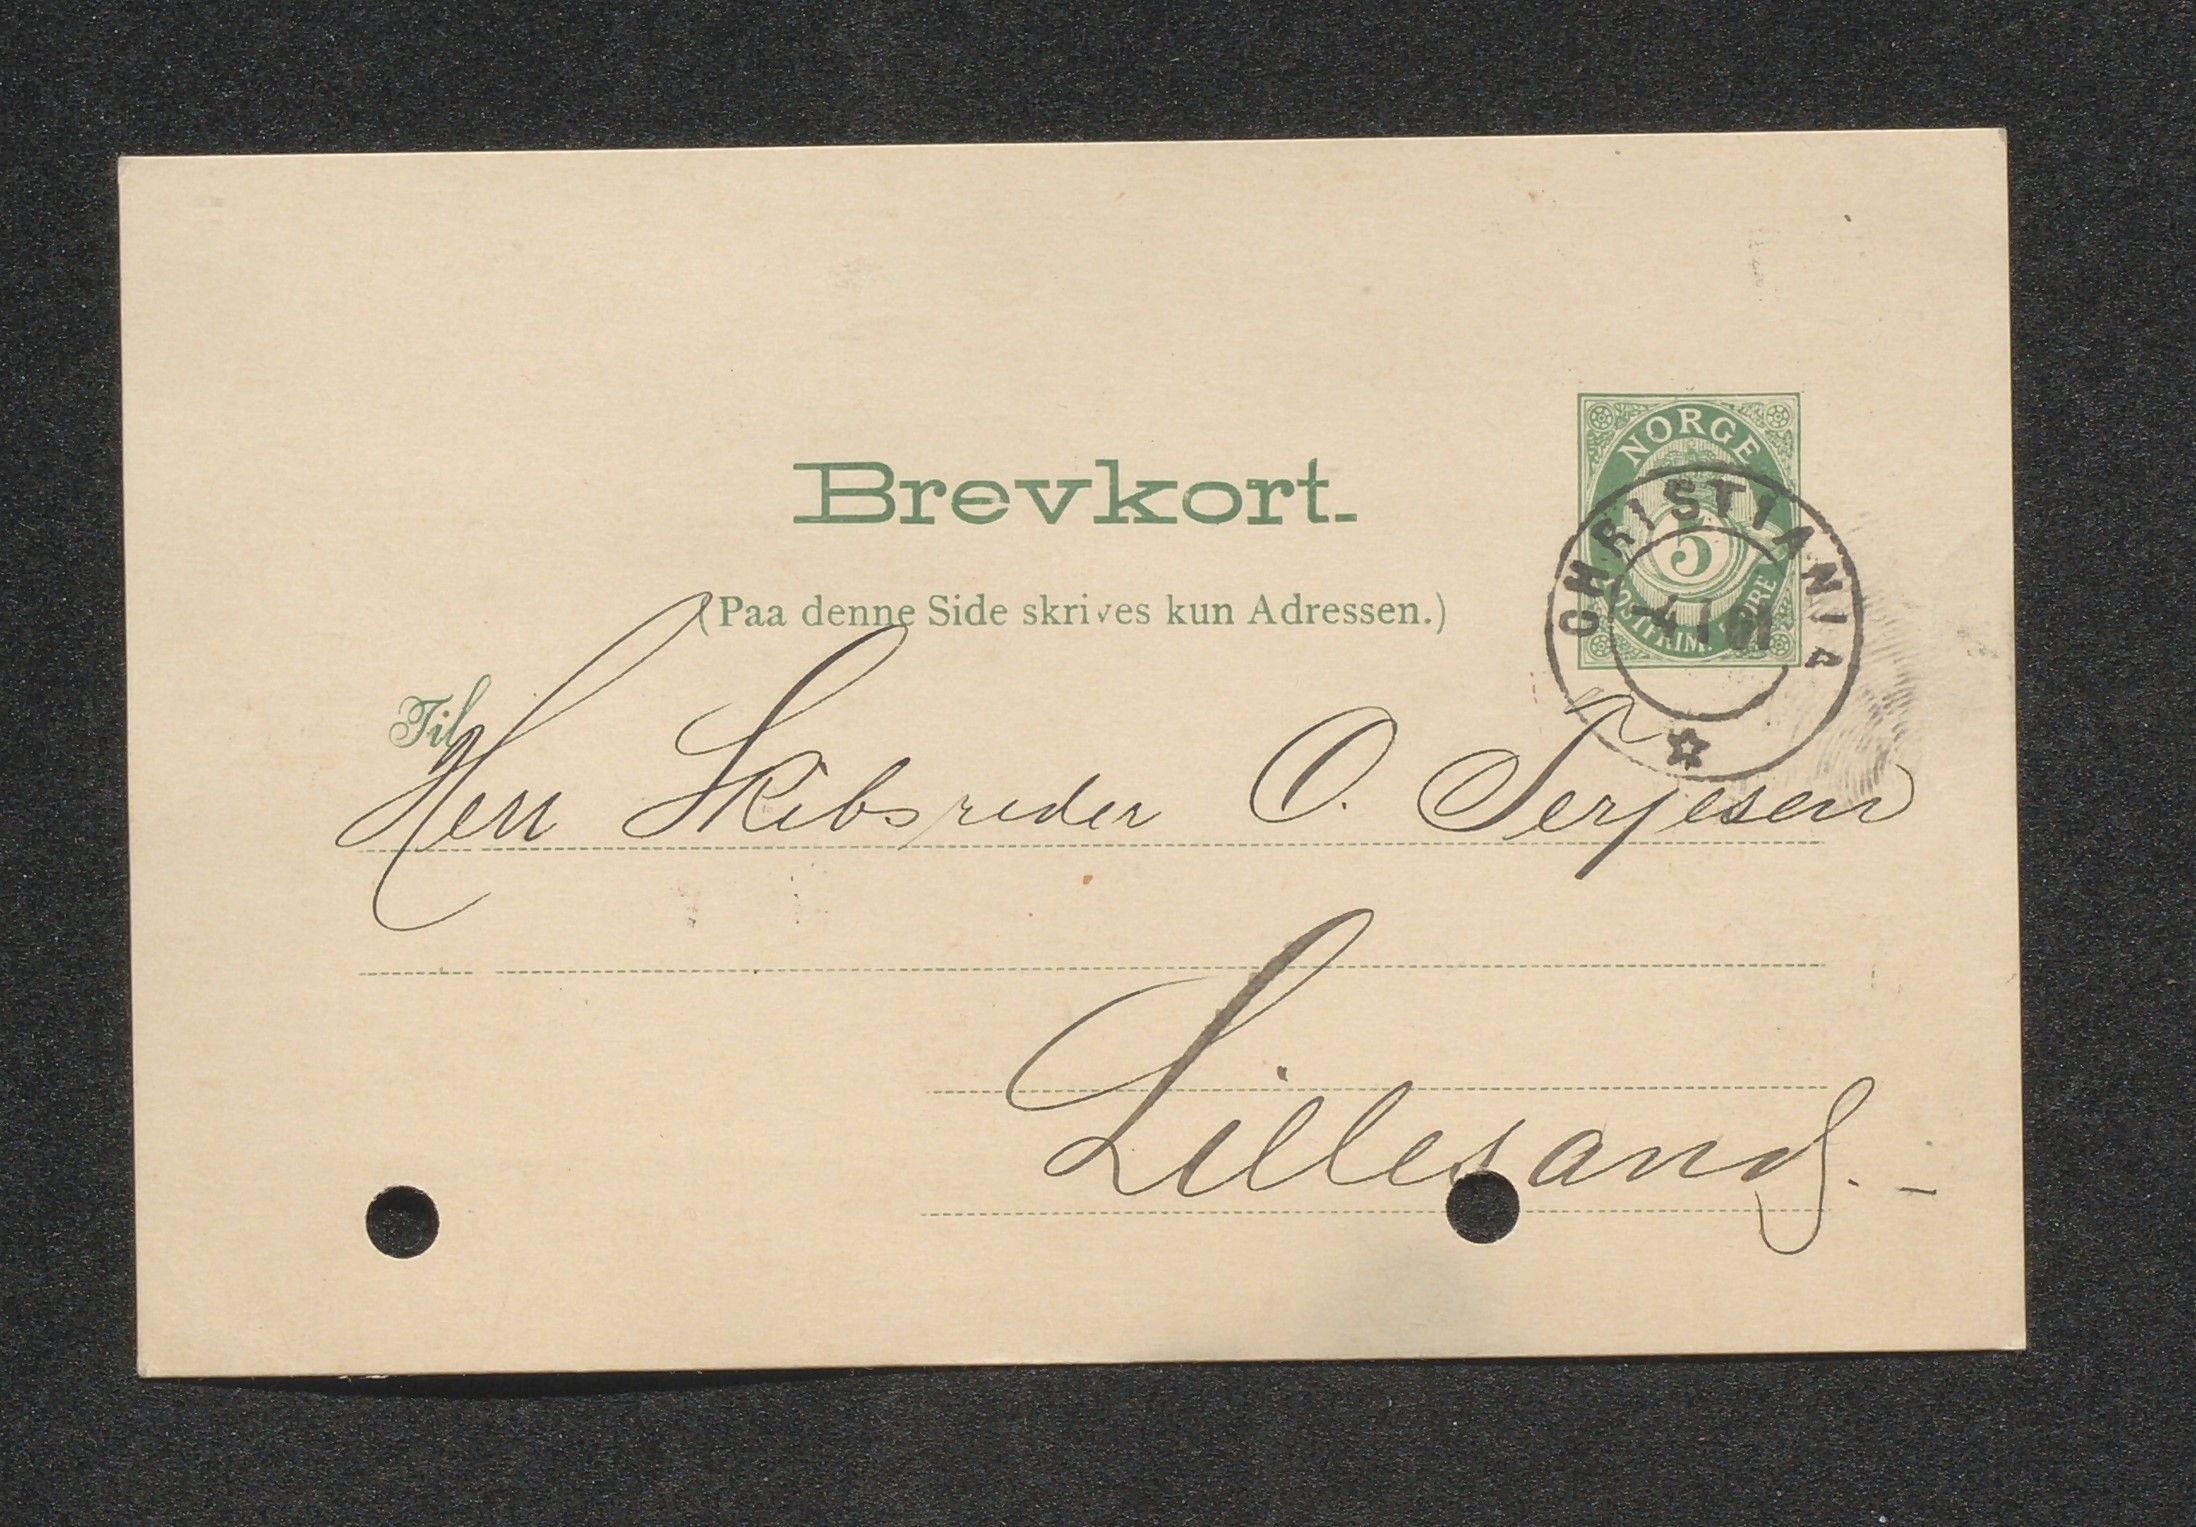 NORGE
5
POSTFRIM. ØRE
CHRISTIANIA
-4 I 01
Brevkort.
(Paa denne Side skrives kun Adressen.)
Til
Herr Skibsreder O. Terjesen
Lillesand. -